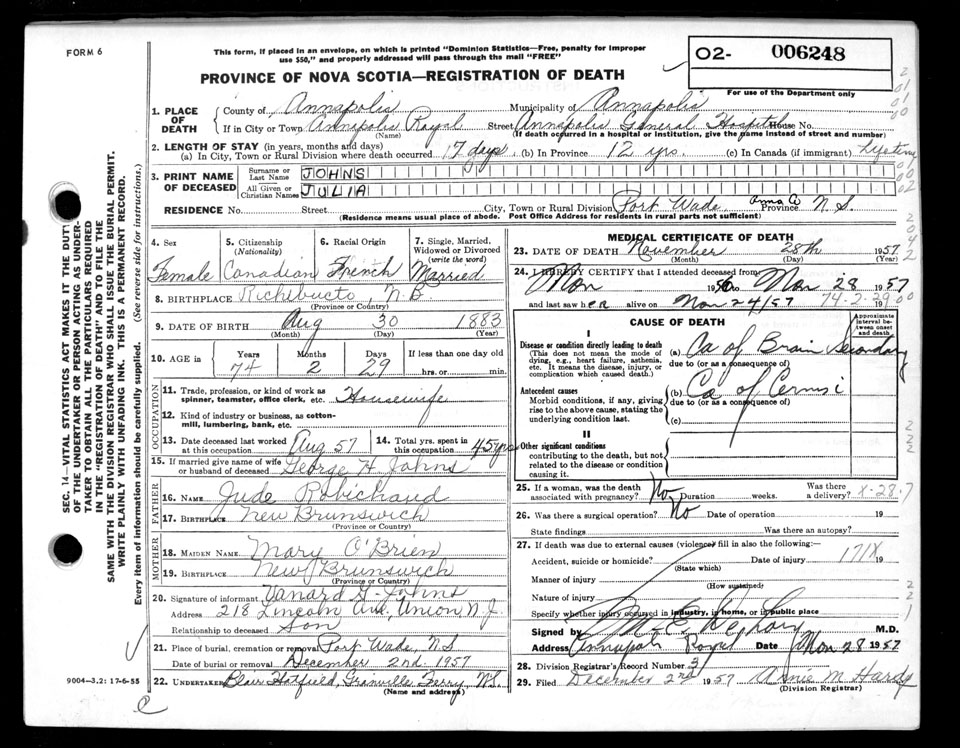 FORM 6
This form, if placed in an envelope, on which is printed "Dominion Statistics—Free, penalty for improper
use $50," and properly addressed will pass through the mail "FREE"
02- 006248
For use of the Department only
PROVINCE OF NOVA SCOTIA—REGISTRATION OF DEATH
1. PLACE OF DEATH County of Annapolis Municipality of Annapolis
If in City or Town Annapolis Royal Street Annapolis General Hospital House No.
(Name) (If death occurred in a hospital or institution, give the name instead of street and number)
2. LENGTH OF STAY (in years, months and days)
(a) In City, Town or Rural Division where death occurred 17 days. (b) In Province 12 yrs. (c) In Canada (if immigrant) Lifetime
3. PRINT NAME OF DECEASED Surname or Last Name JOHNS
All Given or Christian Names JULIA
RESIDENCE No. Street City, Town or Rural Division Port Wade, Anna Co Province N.S.
(Residence means usual place of abode. Post Office Address for residents in rural parts not sufficient)
4. Sex 5. Citizenship (Nationality) 6. Racial Origin 7. Single, Married, Widowed or Divorced (write the word)
Female Canadian French Married
8. BIRTHPLACE Richibucto, N.B
(Province or Country)
9. DATE OF BIRTH Aug 30 1883
(Month) (Day) (Year)
10. AGE in Years Months Days If less than one day old
74 2 29 hrs. or min.
OCCUPATION
11. Trade, profession, or kind of work as spinner, teamster, office clerk, etc. Housewife
12. Kind of industry or business, as cotton-mill, lumbering, bank, etc.
13. Date deceased last worked at this occupation Aug 57 14. Total yrs. spent in this occupation 45 yrs
15. If married give name of wife or husband of deceased George H Johns
FATHER
16. NAME Jude Robichaud
17. BIRTHPLACE New Brunswick
(Province or Country)
MOTHER
18. MAIDEN NAME Mary O'Brien
19. BIRTHPLACE New Brunswick
(Province or Country)
20. Signature of informant Johns
Address 218 Lincoln Ave, Union N.J.
Relationship to deceased Son
21. Place of burial, cremation or removal Port Wade, N.S
Date of burial or removal December 2nd 1957
22. UNDERTAKER Blair Hatfield, Granville Ferry, N.S.
(Name and address)
MEDICAL CERTIFICATE OF DEATH
23. DATE OF DEATH November 28th 1957
(Month) (Day) (Year)
24. I HEREBY CERTIFY that I attended deceased from
Nov 56 to Nov 28 1957
and last saw her alive on Nov 24/57 19
74-2-29
CAUSE OF DEATH
Approximate interval between onset and death
I
Disease or condition directly leading to death
(This does not mean the mode of dying, e.g., heart failure, asthenia, etc. It means the disease, injury, or complication which caused death.)
(a) Ca of Brain Secondary
due to (or as a consequence of)
Antecedent causes
Morbid conditions, if any, giving rise to the above cause, stating the underlying condition last.
(b) Ca of Cervix
due to (or as a consequence of)
(c)
II
Other significant conditions
contributing to the death, but not related to the disease or condition causing it.
25. If a woman, was the death associated with pregnancy? No Duration weeks. Was there a delivery? X-28-7
26. Was there a surgical operation? No Date of operation 19
State findings Was there an autopsy?
27. If death was due to external causes (violence) fill in also the following:—
Accident, suicide or homicide? Date of injury 19
171X
(State which)
Manner of injury
(How sustained)
Nature of injury
Specify whether injury occurred in industry, in home, or in public place
Signed by M.D.
Address Annapolis Royal Date Nov 28 1957
28. Division Registrar's Record Number 3
29. Filed December 2nd 1957 Annie M Hardy
(Division Registrar)
SEC. 14—VITAL STATISTICS ACT MAKES IT THE DUTY
OF THE UNDERTAKER OR PERSON ACTING AS UNDER-
TAKER TO OBTAIN ALL THE PARTICULARS REQUIRED
IN THE "REGISTRATION OF DEATH" AND TO FILE THE
SAME WITH THE DIVISION REGISTRAR WHO SHALL ISSUE THE BURIAL PERMIT.
WRITE PLAINLY WITH UNFADING INK. THIS IS A PERMANENT RECORD.
Every item of information should be carefully supplied. (See reverse side for instructions.)
9004—3.2: 17-6-55